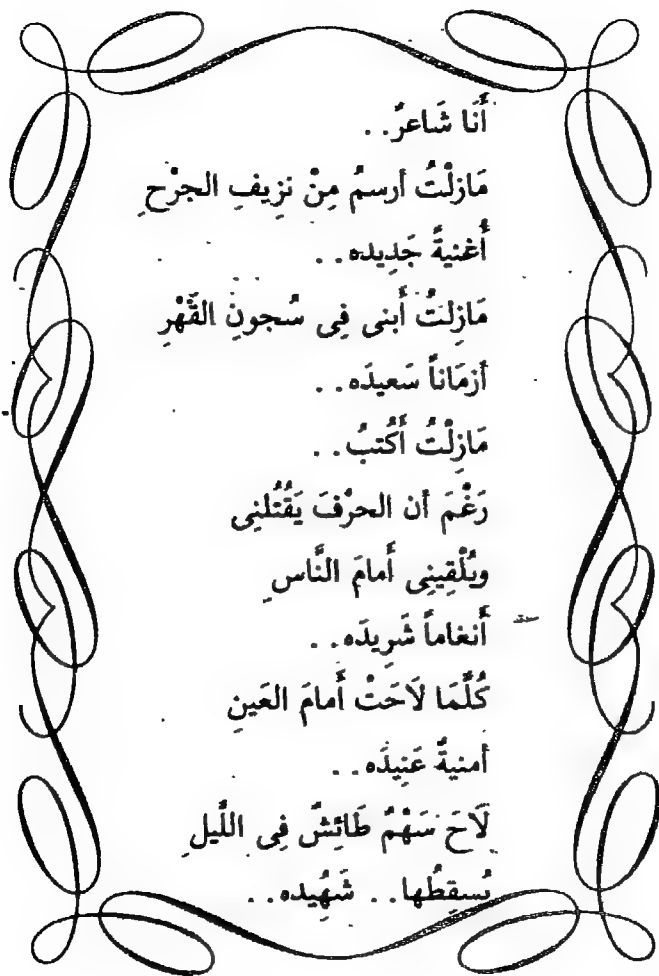 أَنَا شَاعرٌ..
مَازلْتُ أرسمُ مِنْ نزِيفِ الجرْحِ
أُغنيةً جَدِيده..
مَازِلتُ أَبنى فِى سُجونِ القَهْرِ
أزمَاناً سَعيدَه..
مَازِلْتُ أَكْتبُ..
رَغْمَ أن الحرْفَ يَقْتُلنِى
ويُلْقِينِى أَمامَ النَّاسِ
أَنغاماً شَرِيدَه..
كُلَّمَا لاَحَتْ أَمامَ العَينِ
أمنيةٌ عَنِيدَه..
لاَحَ سَهْمٌ طَائِشٌ فِى اللَّيلِ
يُسقِطُها.. شَهِيده..